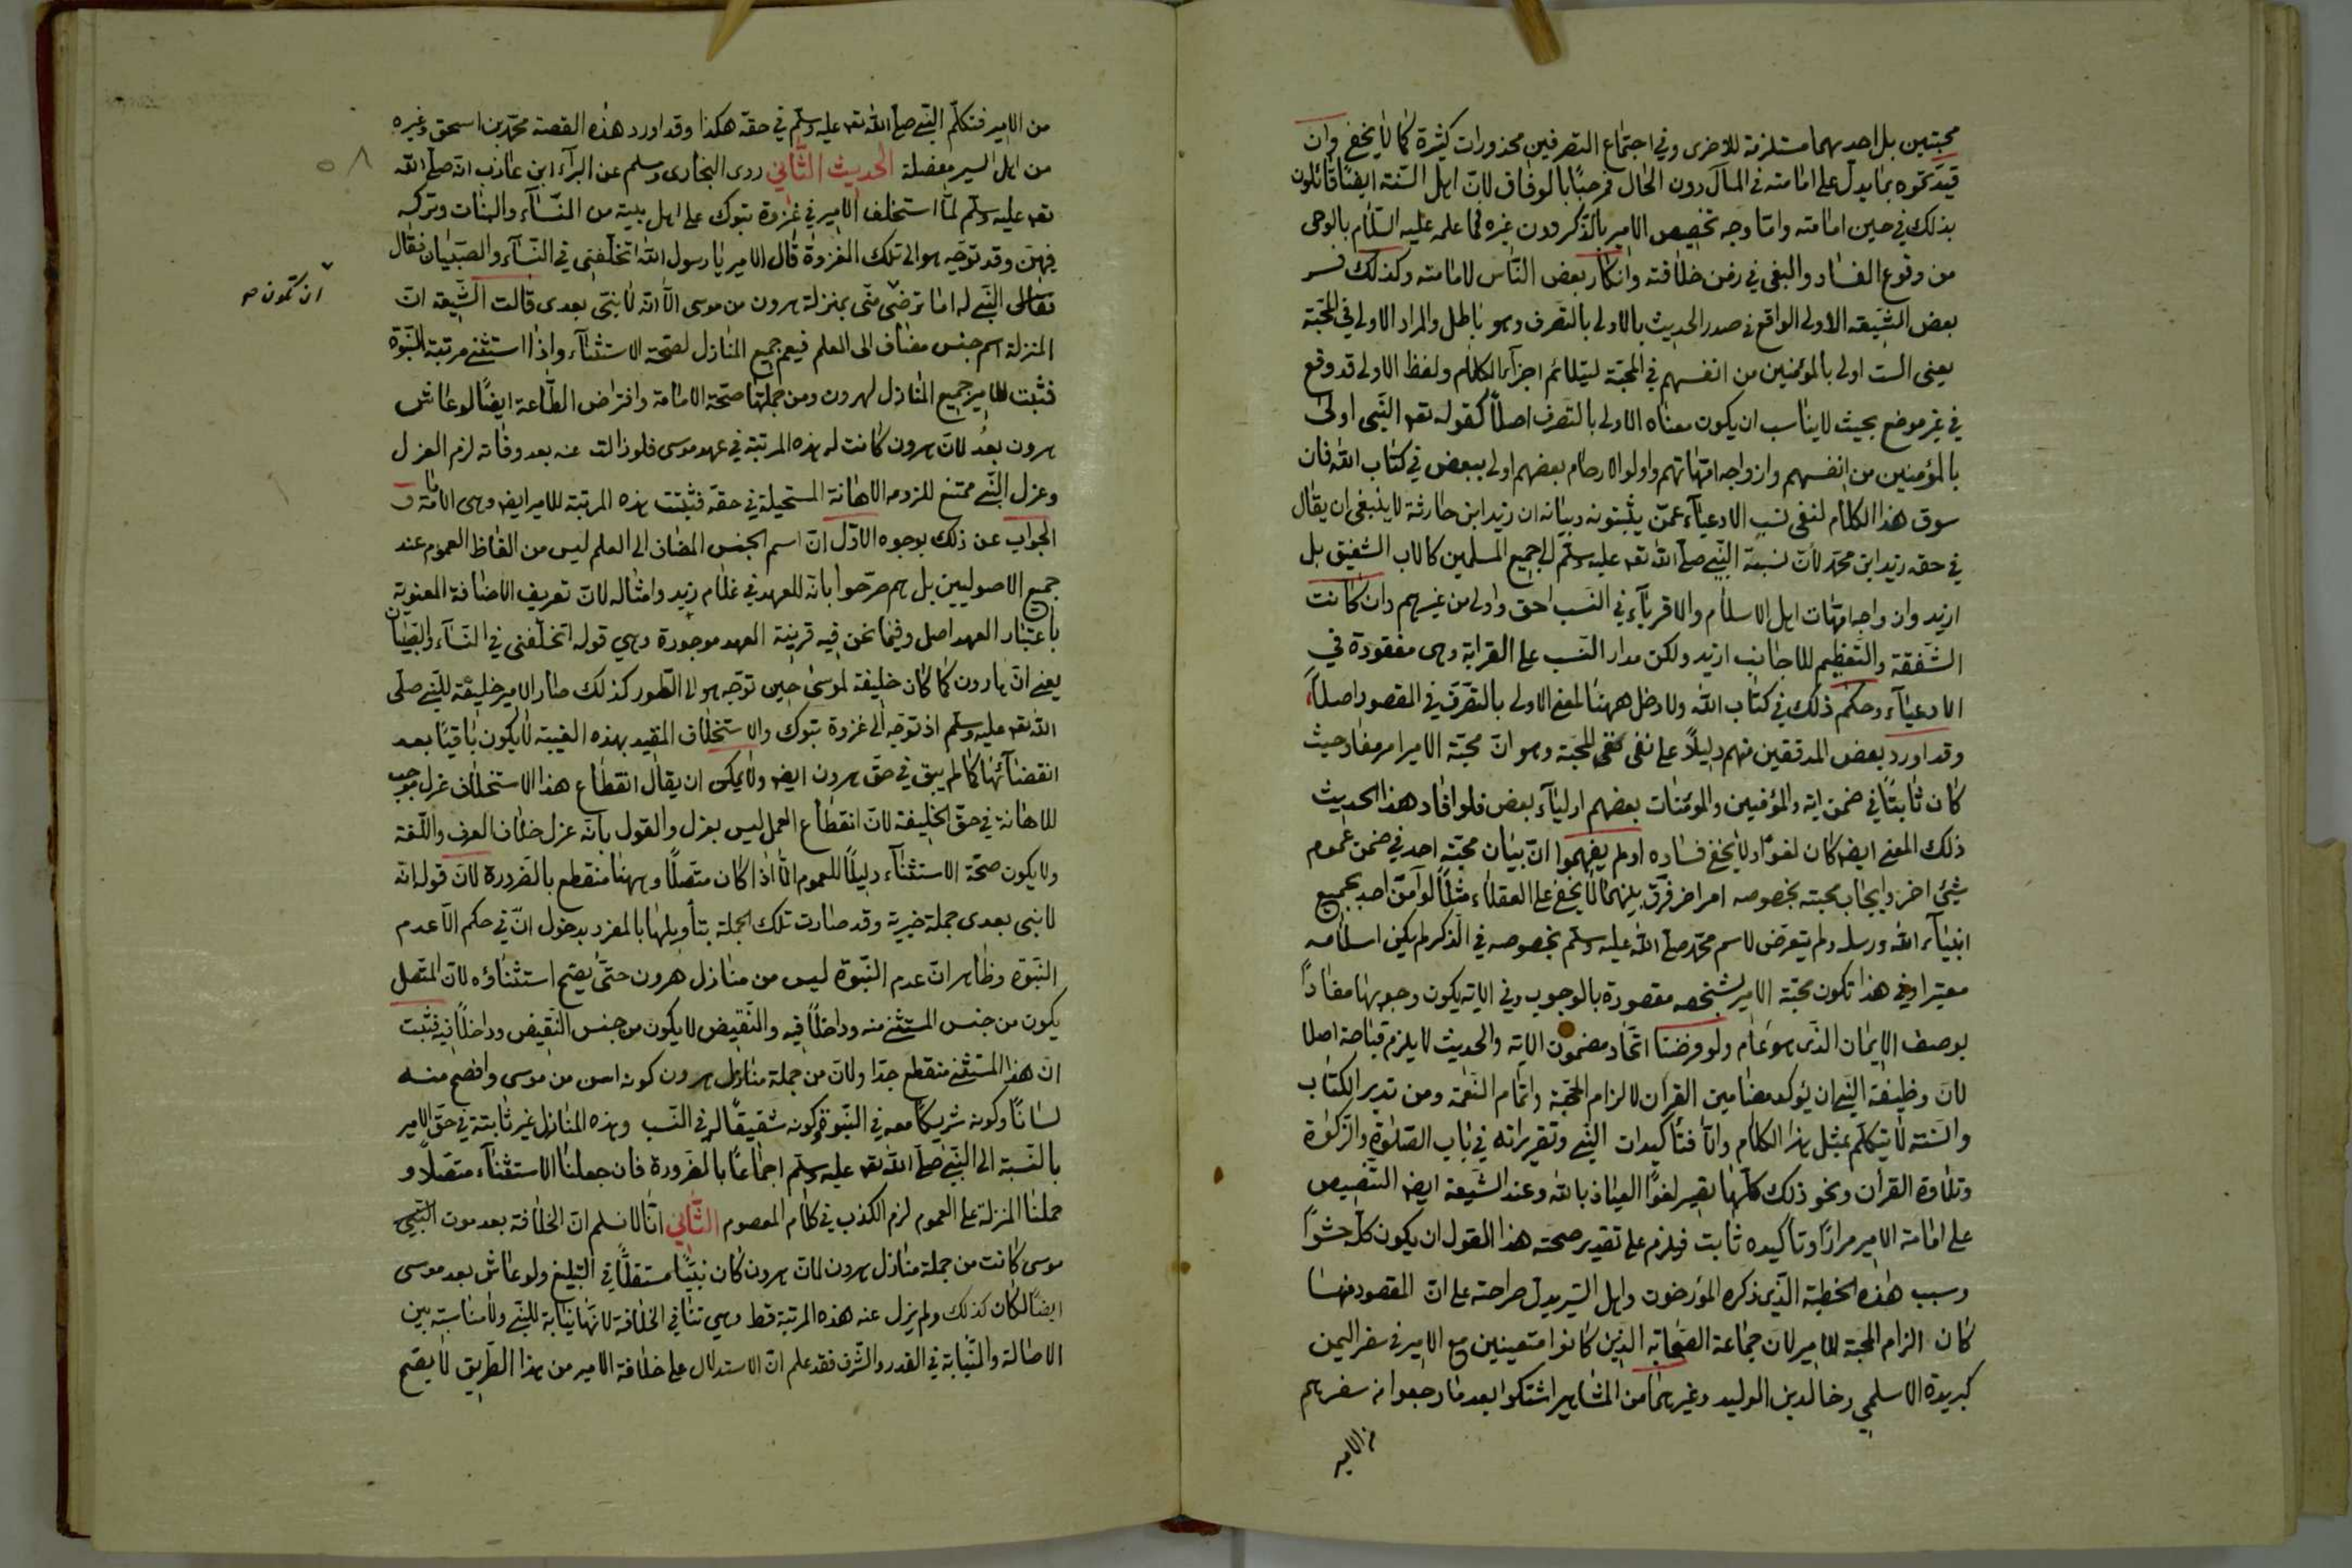 مجتبين بل احديهما مستلزمة للاخرى وفى اجتماع التصرفين محذورات كثيرة كما لا يخفى وان
قيد نحوه بما يدل على امامته فى المآل دون الحال فمرحبًا بالوفاق لان اهل السّنة ايضًا قائلون
بذلك فى حين امامته وامّا وجه تخصيص الامير بالذكر دون غيره فما علمه عليه السّلام بالوحى
من وقوع الفساد والبغى فى زمن خلافته وانكار بعض النّاس لامامته وكذلك فسر
بعض الشّيعة الاولى الواقع فى صدر الحديث بالاولى بالتصرف وهو باطل والمراد الاولى فى المحبّة
يعنى الست اولى بالمؤمنين من انفسهم فى المحبّة ليتلائم اجزآء الكلام ولفظ الاولى قد وقع
فى غير موضع بحيث لا يناسب ان يكون معناه الاولى بالتصرف اصلًا كقوله تعه النّبى اولى
بالمؤمنين من انفسهم وازواجه امّهاتهم واولوا الارحام بعضهم اولى ببعض فى كتاب الله فان
سوق هذا الكلام لنفى نسب الادعيآء عمّن يثبتونه وبيانه ان زيد ابن حارثة لا ينبغى ان يقال
فى حقه زيد ابن محمّد لانّ نسبة النّبى صلّى الله تعه عليه وسلّم الى جميع المسلمين كالاب الشفيق بل
ازيد وازواجه امّهات اهل الاسلام والاقربآء فى النّسب احق واولى من غيرهم وان كانت
الشفقة والتّعظيم للاجانب ازيد ولكن مدار النّسب على القرابة وهى مفقودة فى
الادعيآء وحكم ذلك فى كتاب الله ولا دخل ههنا لمعنى الاولى بالتصرف فى المقصود اصلًا
وقد اورد بعض المدققين منهم دليلًا على نفى معنى المحبّة وهو انّ محبّة الامير امر مفاد حيث
كان ثابتًا فى ضمن اية والمؤمنين والمؤمنات بعضهم اوليآء بعض فلو افاد هذا الحديث
ذلك المعنى ايضه كان لغوًا ولا يخفى فساده او لم يفهموا انّ بيان محبّة احد فى ضمن عموم
شئ اخر وايجاب محبته بخصوصه امر اخر فرّق بينهما لا يخفى على العقلاء مثلًا لو آمن احد بجميع
انبيآء الله ورسله ولم يتعرّض لاسم محمّد صلّى الله عليه وسلّم بخصوصه فى الذكر لم يكن اسلامه
معتبرا وفى هذا تكون محبّة الامير لشخصه مقصودة بالوجوب وفى الاية يكون وجوبها مفادًا
بوصف الايمان الذى هو عام ولو فرضنا اتّحاد مضمون الاية والحديث لا يلزم قباحة اصلا
لانّ وظيفة النّبى ان يؤكد مضامين القرآن لالزام الحجّة واتمام النّعمة ومن تدبر الكتاب
والسّنة لا يتكلم بمثل هذا الكلام والّا فتأكيدات النّبى وتقريراته فى باب الصّلوة والزّكوة
وتلاوة القرآن ونحو ذلك كلّها يصير لغوًا العياذ بالله وعند الشّيعة ايضه التنصيص
على امامة الامير مرارًا وتأكيده ثابت فيلزم على تقدير صحة هذا القول ان يكون كلّه حشوًا
وسبب هذه الخطبة الّذى ذكره المؤرخون واهل السّير يدل صراحة على انّ المقصود منها
كان الزام المحبّة للامير لانّ جماعة الصّحابة الذين كانوا متعينين مع الامير فى سفر اليمن
كبريدة الاسلمى وخالد بن الوليد وغيرهما من المشاهير اشتكوا بعد ما رجعوا من سفرهم
من الامير
من الامير فتكلّم النّبى صلّى الله تعه عليه وسلّم فى حقه هكذا وقد اورد هذه القصة محمّد بن اسحق وغيره
من اهل السير مفصلة الحديث الثّانى روى البخارى ومسلم عن البرآء ابن عاذب انه صلّى الله
تعه عليه وسلّم لمّا استخلف الامير فى غزوة تبوك على اهل بيته من النّسآء والبنات وتركه
فيهنّ وقد توجّه هو الى تلك الغزوة قال الامير يا رسول الله اتخلّفنى فى النّسآء والصّبيان فقال
تعالى النّبى له اما ترضى منّى بمنزلة هرون من موسى الّا انّه لا نبىّ بعدى قالت الشّيعة انّ
ان تكون صح
المنزلة اسم جنس مضاف الى العلم فيعم جميع المنازل لصحّة الاستثنآء واذا استثنى مرتبة النّبوّة
فثبت للامير جميع المنازل لهرون ومن جملتها صحّة الامامة وافتراض الطّاعة ايضًا لو عاش
هرون بعدُ لانّ هرون كانت له هذه المرتبة فى عهد موسى فلو زالت عنه بعد وفاته لزم العزل
وعزل النّبى ممتنع للزومه الاهانة المستحيلة فى حقه فثبتت هذه المرتبة للامير ايضه وهى الامامة و
الجواب عن ذلك بوجوه الاوّل انّ اسم الجنس المضاف الى العلم ليس من الفاظ العموم عند
جميع الاصوليين بل هم صرّحوا بانّه للعهد فى غلام زيد وامثاله لانّ تعريف الاضافة المعنوية
باعتبار العهد اصل وفيما نحن فيه قرينة العهد موجودة وهي قوله اتخلّفنى فى النّسآء والصّبيان
يعنى انّ هارون كما كان خليفة لموسى حين توجّه هو الى الطّور كذلك صار الامير خليفة للنّبى صلّى
الله تعه عليه وسلّم اذ توجّه الى غزوة تبوك والاستخلاف المقيد بهذه الغيبة لا يكون باقيًا بعد
انقضائها كما لم يبق فى حقّ هرون ايضه ولا يمكن ان يقال انقطاع هذا الاستخلاف عزل موجب
للاهانة فى حقّ الخليفة لانّ انقطاع العمل ليس بعزل والقول بانّه عزل خلاف العرف واللّغة
ولا يكون صحّة الاستثنآء دليلًا للعموم الّا اذا كان متّصلًا وههنا منقطع بالضرورة لانّ قوله انّه
لا نبى بعدى جملة خبرية وقد صارت تلك الجملة بتأويلها بالمفرد بدخول انّ فى حكم الّا عدم
النّبوّة وظاهر انّ عدم النّبوّة ليس من منازل هرون حتّى يصحّ استثناؤه لانّ المتّصل
يكون من جنس المستثنى منه وداخلًا فيه والنّقيض لا يكون من جنس النّقيض وداخلًا فيه فثبت
انّ هذا المستثنى منقطع جدّا ولانّ من جملة منازل هرون كونه اسن من موسى وافصح منه
لسانًا وكونه شريكًا معه فى النّبوّة وكونه شقيقًا له فى النّسب وهذه المنازل غير ثابتة فى حقّ الامير
بالنّسبة الى النّبىّ صلّى الله تعه عليه وسلّم اجماعًا بالضرورة فان جعلنا الاستثنآء متصلًا و
حملنا المنزلة على العموم لزم الكذب فى كلام المعصوم الثّانى انّا لا نسلم انّ الخلافة بعد موت النّبى
موسى كانت من جملة منازل هرون لانّ هرون كان نبيًّا مستقلًّا فى التبليغ ولو عاش بعد موسى
ايضًا لكان كذلك ولم يزل عنه هذه المرتبة قط وهى تنافى الخلافة لانّها نيابة للنّبى ولا مناسبة بين
الاصالة والنّيابة فى القدر والشّرف فقد علم انّ الاستدلال على خلافة الامير من هذا الطّريق لا يصحّ